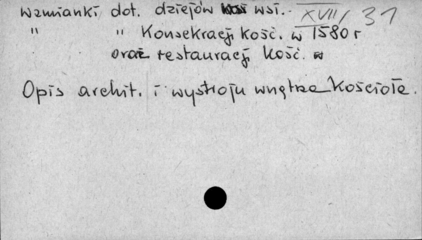 wzmianki dot. dziejów wsi. XVIII/31
" " Konsekracji kość. w 1580 r
oraz restauracji kość.
Opis archit. i wystroju wnętrza Kościoła.